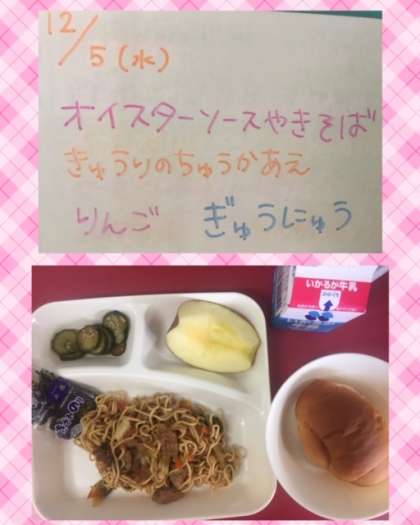 12/5(水)
オイスターソースやきそば
きゅうりのちゅうかあえ
りんご ぎゅうにゅう
いかるが牛乳